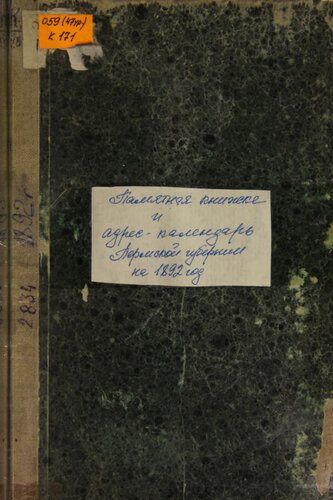 059(47гр)
К 171
Памятная книжка
и
адрес-календарь
Пермской губернии
на 1892 год
1892 г
2834